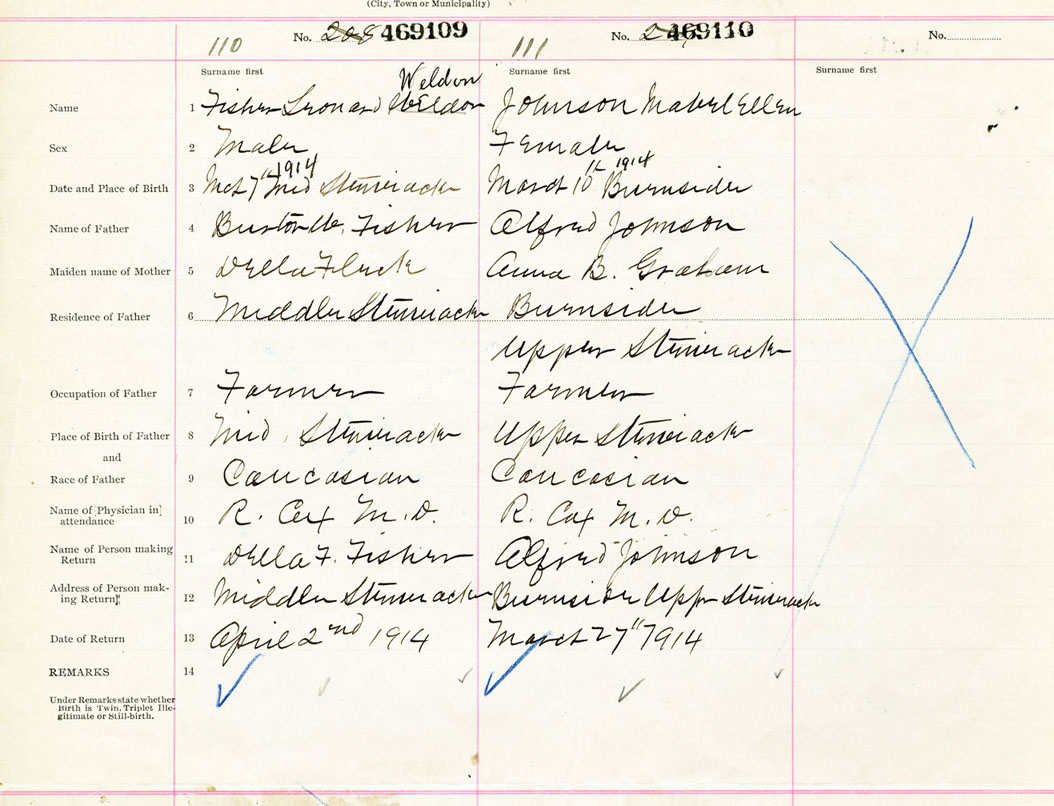 (City, Town or Municipality)
110 No. 208 469109 111 No. 469110 No.
Surname first Surname first Surname first
Weldon
Name 1 Fisher Leonard Weldon Johnson Mabel Ellen
Sex 2 Male Female
1914 1914
Date and Place of Birth 3 7th Mid Stewiacke March 10th Burnside
Name of Father 4 Burton W. Fisher Alfred Johnson
Maiden name of Mother 5 Della Fleck Anna B. Graham
Residence of Father 6 Middle Stewiacke Burnside
Upper Stewiacke
Occupation of Father 7 Farmer Farmer
Place of Birth of Father 8 Mid. Stewiacke Upper Stewiacke
and
Race of Father 9 Caucasian Caucasian
Name of [Physician in]
attendance 10 R. Cox M.D. R. Cox M.D.
Name of Person making
Return 11 Della F. Fisher Alfred Johnson
Address of Person mak-
ing Return 12 Middle Stewiacke Burnside Upper Stewiacke
Date of Return 13 April 2nd 1914 March 27" 1914
REMARKS 14
Under Remarks state whether
Birth is Twin, Triplet Ille-
gitimate or Still-birth.